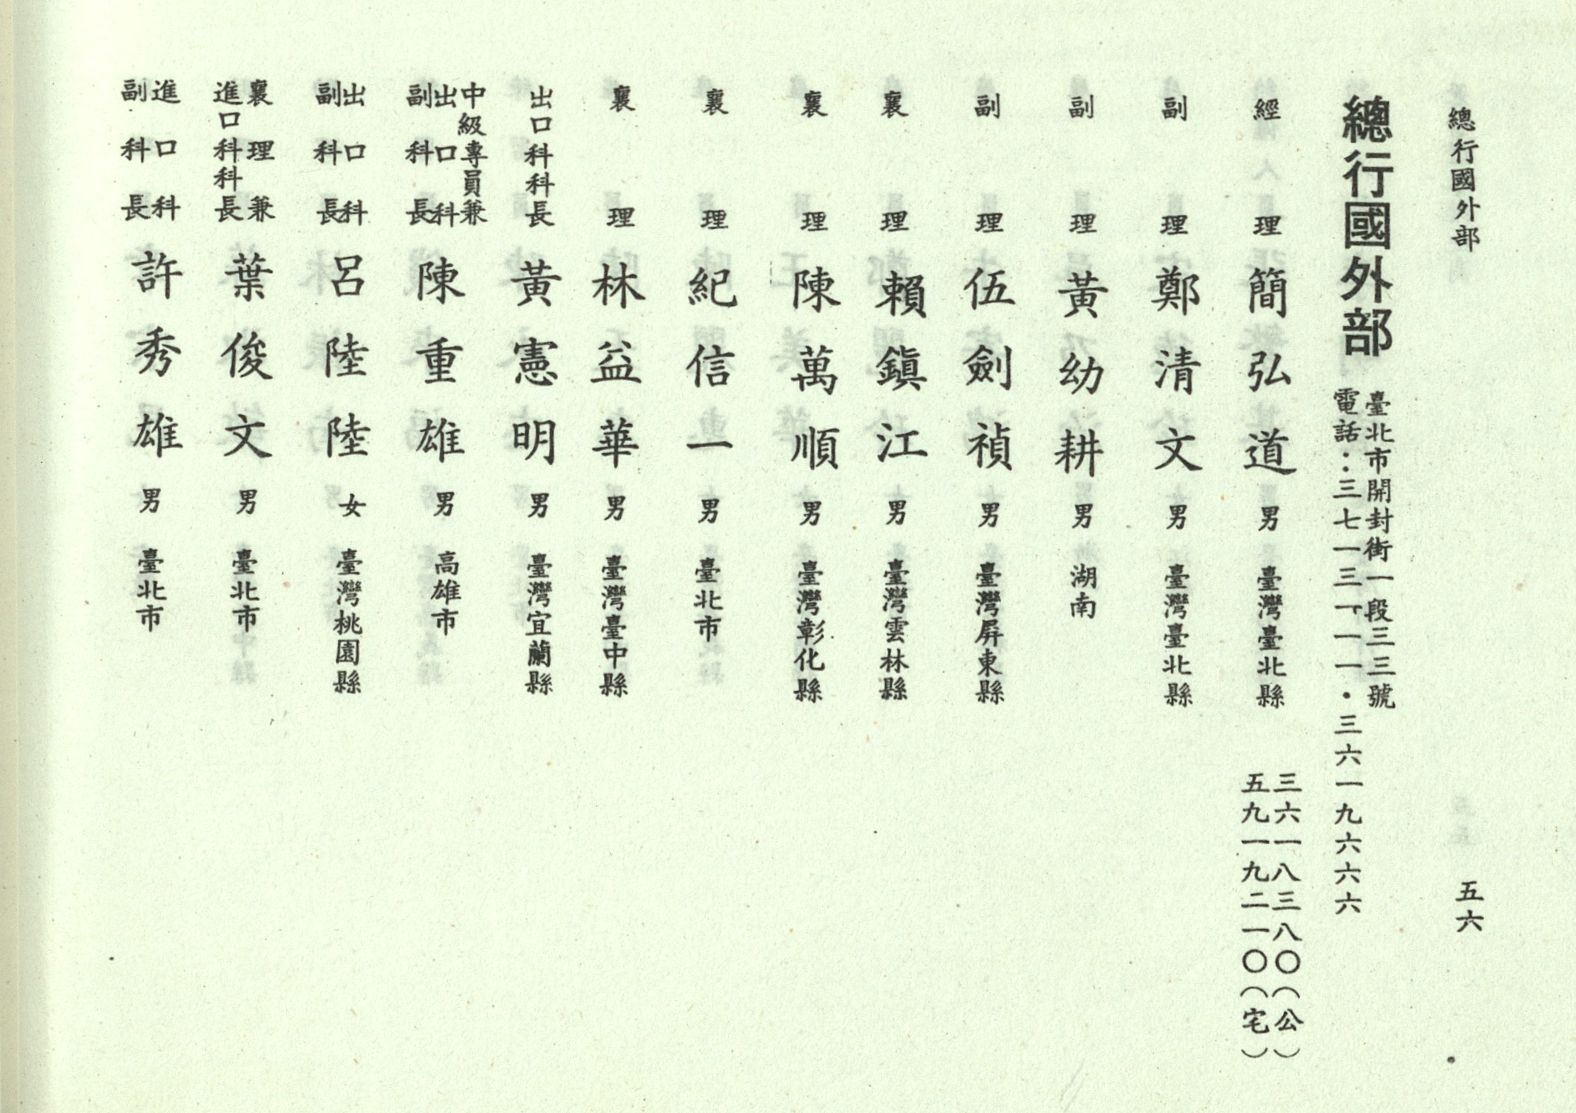 總行國外部
五六
總行國外部
臺北市開封街一段三三號
電話：三七一三一一一・三六一九六六六
經理 簡弘道 男 臺灣臺北縣 三六一八三八〇（公）
五九一九二一〇（宅）
副理 鄭清文 男 臺灣臺北縣
副理 黃幼耕 男 湖南
副理 伍劍禎 男 臺灣屏東縣
襄理 賴鎮江 男 臺灣雲林縣
襄理 陳萬順 男 臺灣彰化縣
襄理 紀信一 男 臺北市
襄理 林益華 男 臺灣臺中縣
出口科科長 黃憲明 男 臺灣宜蘭縣
中級專員兼
出口科
副科長 陳重雄 男 高雄市
出口科
副科長 呂陸陸 女 臺灣桃園縣
襄理兼
進口科科長 葉俊文 男 臺北市
進口科
副科長 許秀雄 男 臺北市